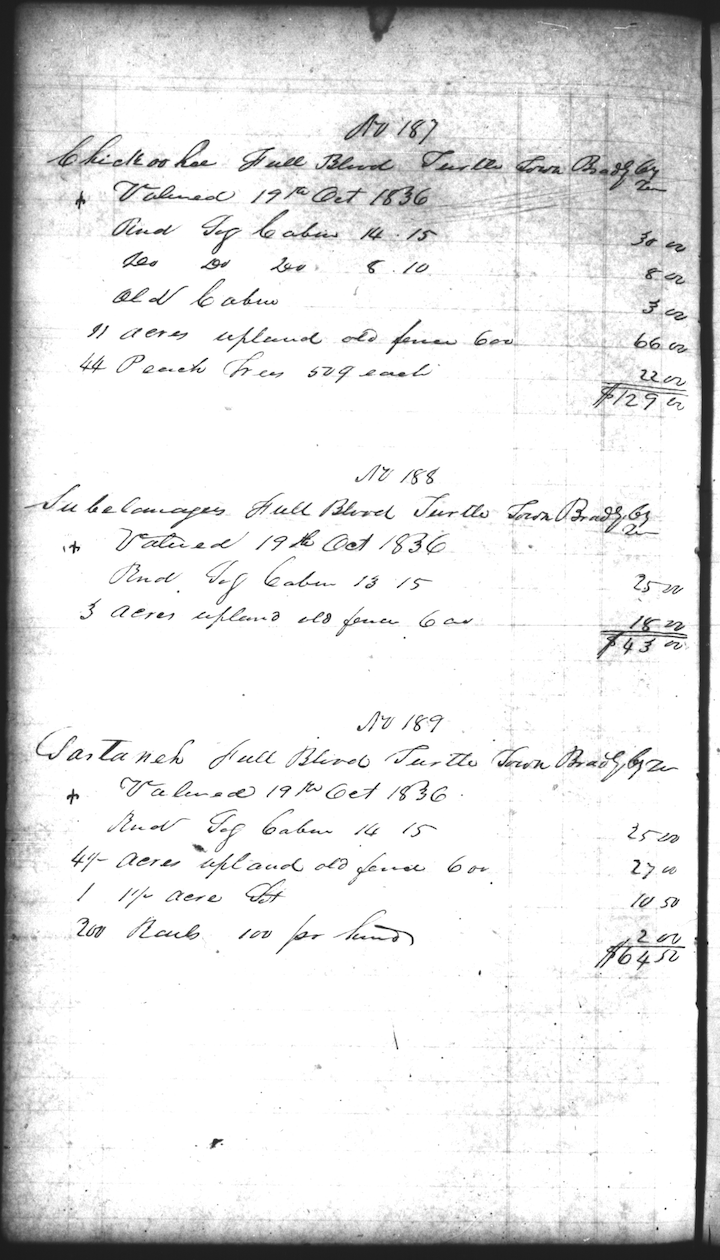 No 187
Chickoohee Full Blood Turtle Town Bradly Cy
Ten
+ Valued 19th Oct 1836
Rnd Log Cabin 14 . 15 30 00
Do Do Do 8 . 10 8 00
Old Cabin 3 00
11 acres upland old fence 600 66 00
44 Peach Trees 50¢ each 22 00
$129 00
No 188
Full Blood Turtle Town Bradly Cy
Ten
+ Valued 19th Oct 1836
Rnd Log Cabin 13 15 25 00
3 acres upland old fence 6 00 18 00
$43 00
No 189
Sastaneh Full Blood Turtle Town Bradly Cy Ten
+ Valued 19th Oct 1836
Rnd Log Cabin 14 15 25 00
4½ acres upland old fence 6 00 27 00
1 1½ acre Lot 10 50
200 Rails 100 pr hund 2 00
$64 50